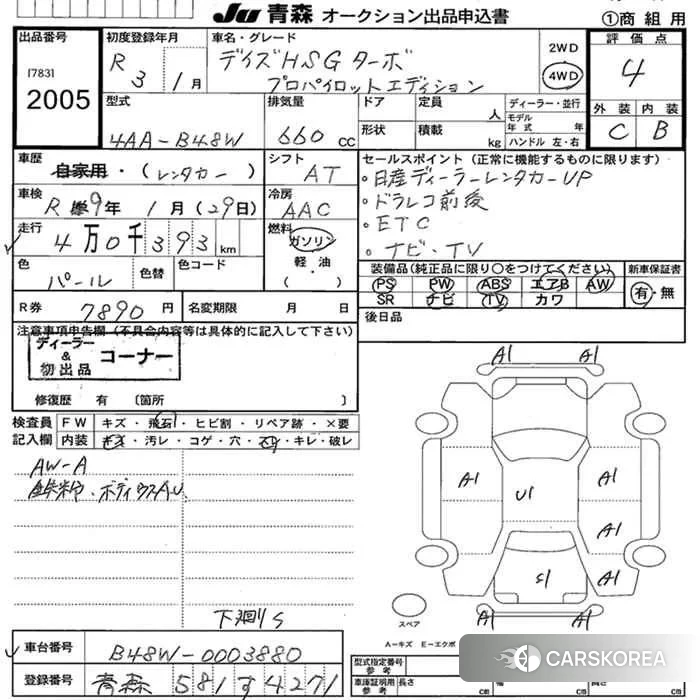 Ju 青森 オークション出品申込書
①商組用
出品番号
17831
2005
初度登録年月
R 3 1月
車名・グレード
デイズHSGターボ
プロパイロットエディション
2WD
4WD
評価点
4
外装 内装
C B
型式
4AA-B48W
排気量
660 CC
ドア
定員 人
形状
積載 kg
ディーラー・並行
モデル年式 年
ハンドル 左・右
車歴
自家用・(レンタカー)
シフト
AT
セールスポイント(正常に機能するものに限ります)
・日産ディーラーレンタカーUP
・ドラレコ前後
・ETC
・ナビ・TV
車検
R 9年 1月(29日)
冷房
AAC
走行
4万0千393km
燃料
ガソリン
軽・油
( )
色
パール
色替
色コード
装備品(純正品に限り○をつけてください)
PS PW ABS エアB AW
SR ナビ TV カワ
新車保証書
有・無
R券
7890円
名変期限 月 日
後日品
注意事項申告欄(不具合内容等は具体的に記入して下さい)
ディーラー
&
初出品
コーナー
修復歴 有 〔箇所 〕
検査員
記入欄
FW キズ・飛石・ヒビ割・リペア跡・×要
内装 キズ・汚レ・コゲ・穴・スレ・キレ・破レ
AW-A
鉄粉・ボディウスAU
下廻りS
A1 A1
A1 U1 A1
A1
S1 A1
A1 A1
スペア
A-キズ E-エクボ
車台番号
B48W-0003880
登録番号
青森 581す4271
型式指定番号
参考
車庫証明用
参考
長さ
cm
幅
cm
高さ
cm
CARSKOREA